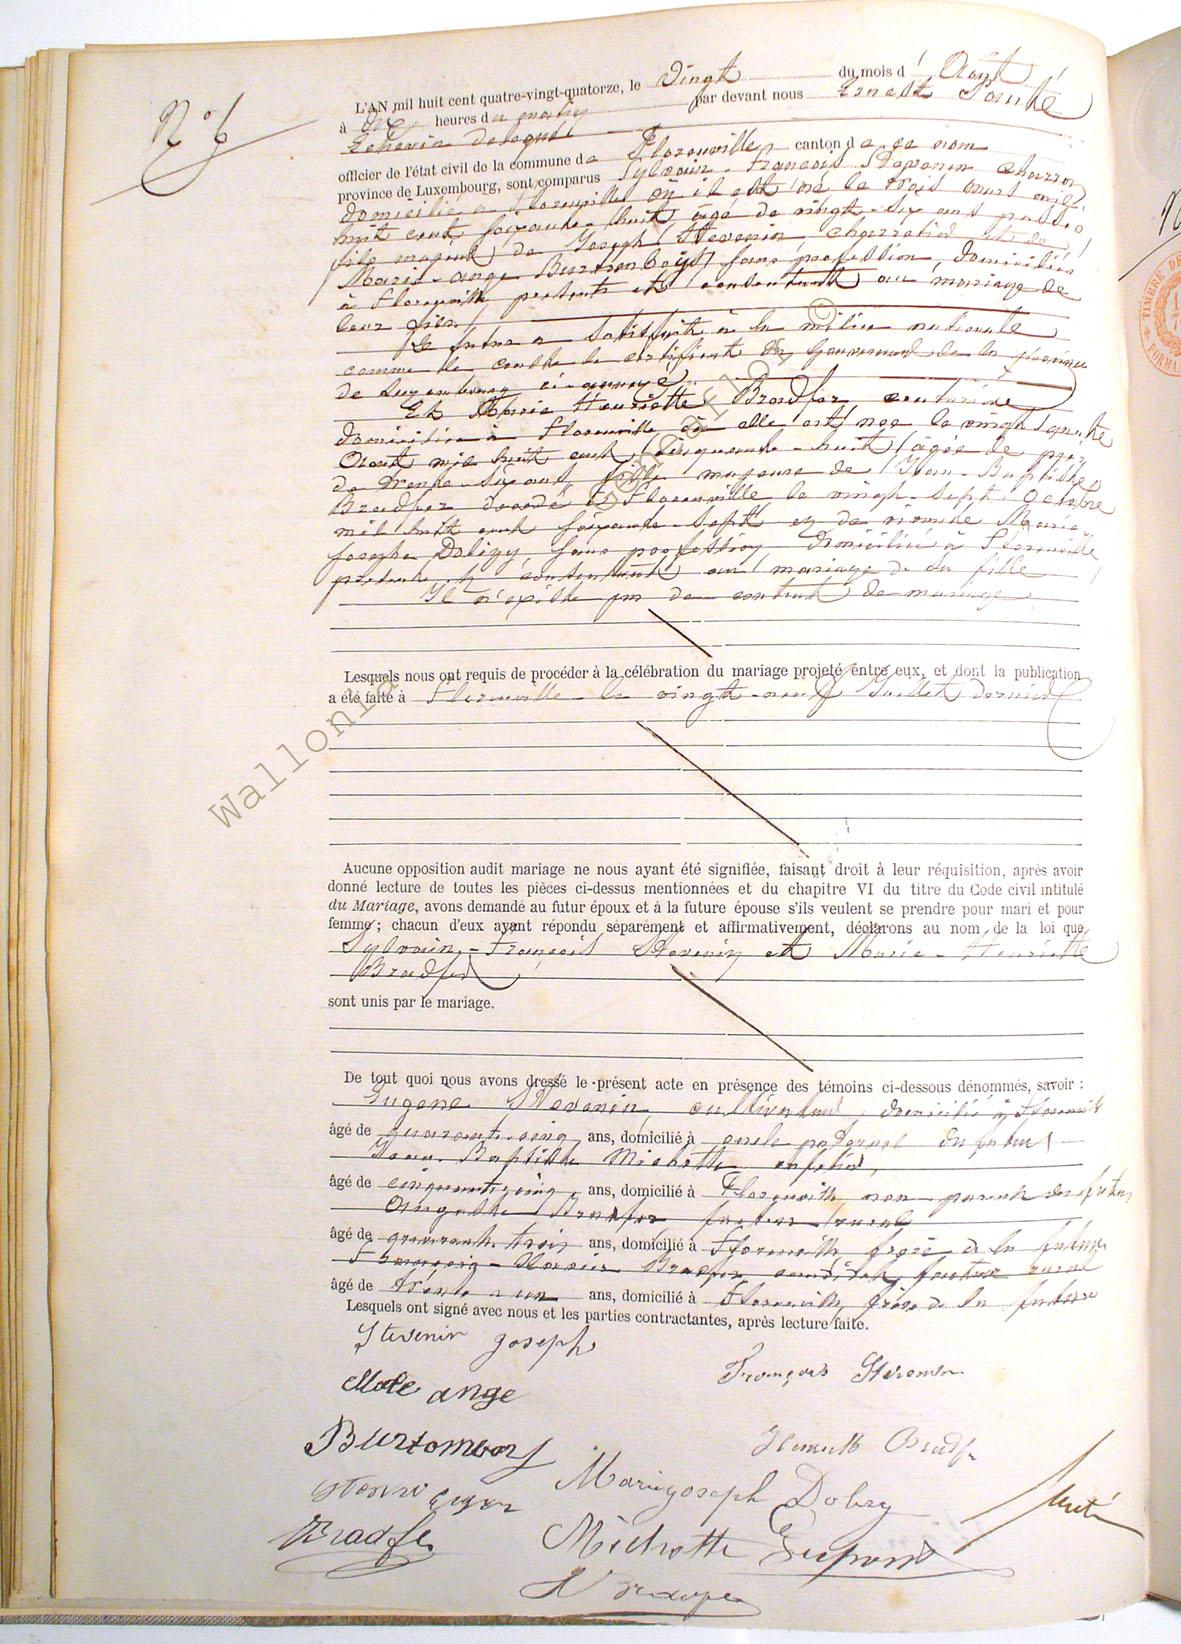 N° 6
L'AN mil huit cent quatre-vingt-quatorze, le vingt du mois d' Août
à dix heures du matin par devant nous Ernest
Echevin délégué
officier de l'état civil de la commune de Florenville canton de ce nom
province de Luxembourg, sont comparus Sylvain-François Stevenin charron
domicilié à Florenville où il est né le trois mars mil
huit cent soixante-huit, âgé de vingt-six ans passés
fils majeur de Joseph Stevenin, et de
Marie-ange sans profession, domiciliés
à Florenville, présents et consentant au mariage de
leur fils
Le futur a satisfait à la milice nationale
comme le constate le certificat du Gouverneur de la province
de Luxembourg ci-annexé
Et Marie Henriette Bradfer couturière
domiciliée à Florenville où elle est née le vingt
Août mil huit cent cinquante-huit, âgée de
de trente-six ans, fille majeure de Jean-Baptiste
Bradfer décédé à Florenville le vingt-sept Octobre
mil huit cent soixante-sept et de vivante Marie
Josephe sans profession, domiciliée à Florenville,
présente et consentant au mariage de sa fille
Il n'existe pas de contrat de mariage
Lesquels nous ont requis de procéder à la célébration du mariage projeté entre eux, et dont la publication
a été faite à Florenville le vingt-neuf Juillet dernier
Wallonia
©
Aucune opposition audit mariage ne nous ayant été signifiée, faisant droit à leur réquisition, après avoir
donné lecture de toutes les pièces ci-dessus mentionnées et du chapitre VI du titre du Code civil intitulé
du Mariage, avons demandé au futur époux et à la future épouse s'ils veulent se prendre pour mari et pour
femme; chacun d'eux ayant répondu séparément et affirmativement, déclarons au nom de la loi que
Sylvain-François Stevenin et Marie-Henriette
Bradfer
sont unis par le mariage.
De tout quoi nous avons dressé le présent acte en présence des témoins ci-dessous dénommés, savoir :
Eugene Stevenin, cultivateur, domicilié à Florenville
âgé de quarante-cinq ans, domicilié à oncle paternel du futur
Jean-Baptiste Michotte
âgé de cinquante-cinq ans, domicilié à Florenville non parent des futurs
Auguste Bradfer facteur rural
âgé de quarante-trois ans, domicilié à Florenville frère de la future
François-Xavier Bradfer facteur rural
âgé de trente-un ans, domicilié à Florenville, frère de la future
Lesquels ont signé avec nous et les parties contractantes, après lecture faite.
Stevenin Joseph
François Stevenin
ange
Bradfer
Mariejoseph
Bradfer
Michotte
TIMBRE DE
FORMA